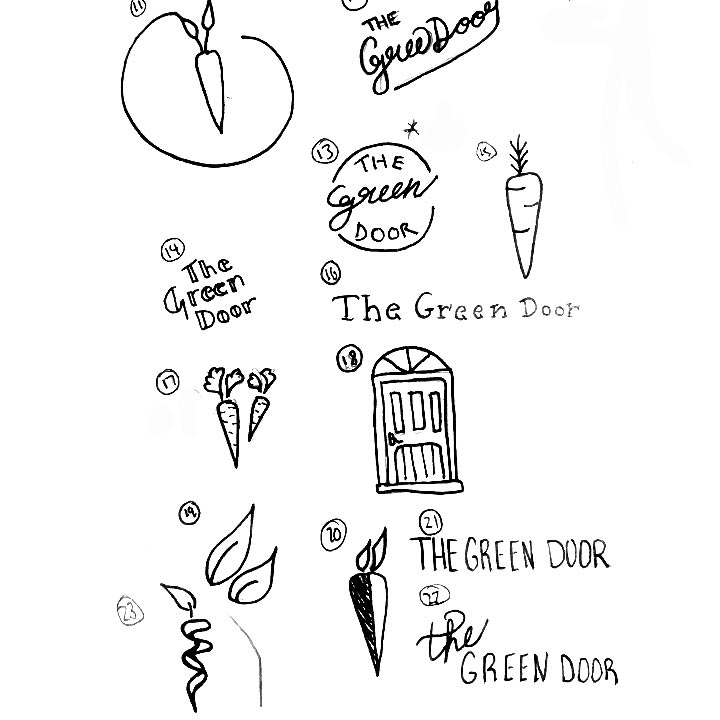 11
THE
Green Door
13
THE
green
DOOR
15
14
The
Green
Door
16
The Green Door
17
18
19
20
21
THE GREEN DOOR
22
the
GREEN DOOR
23